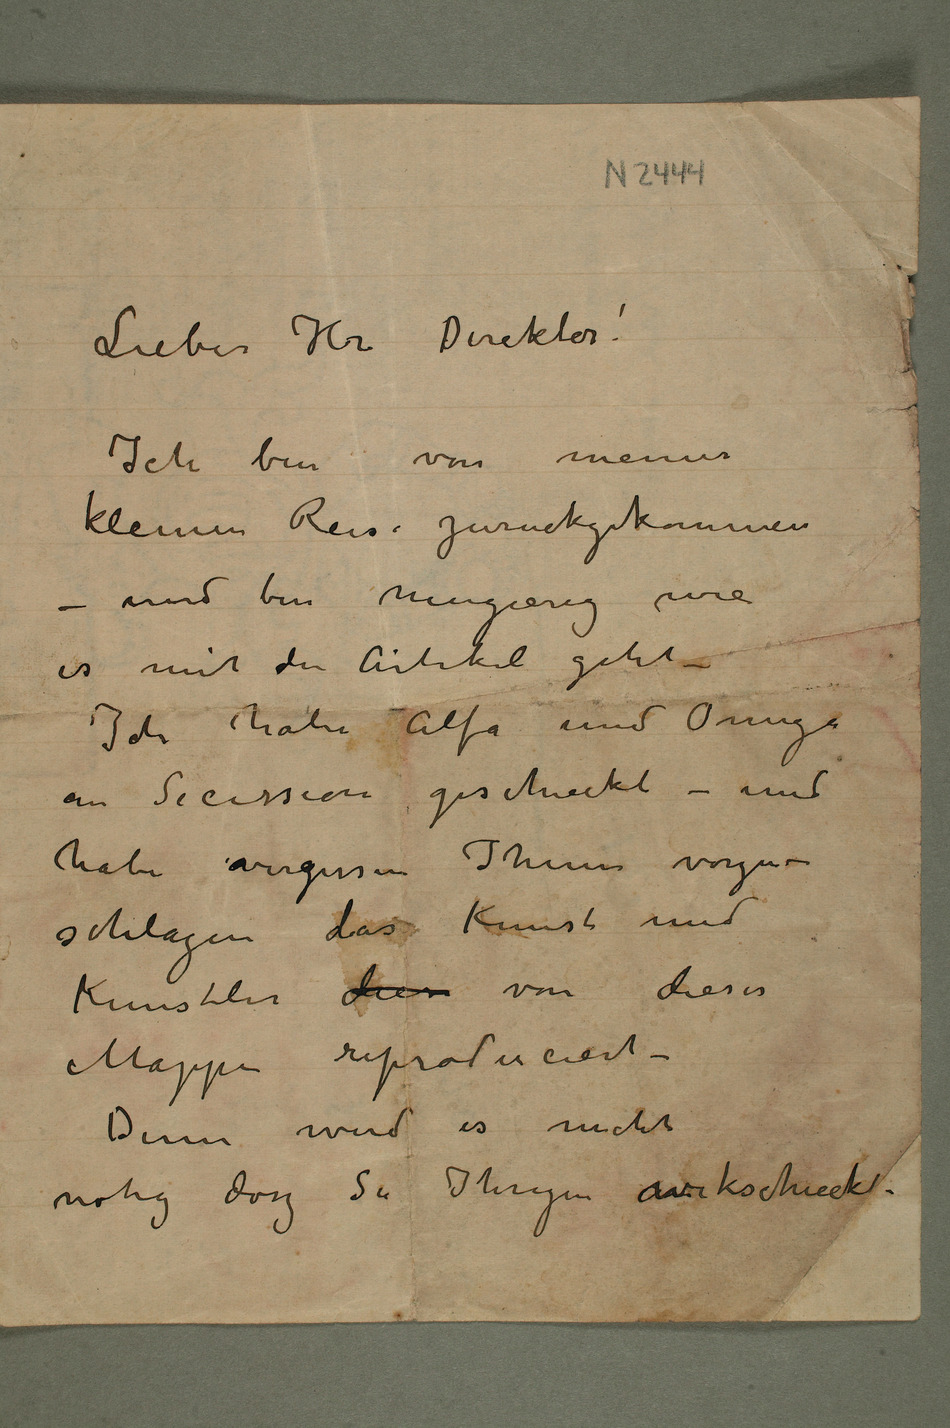 N 2444
Lieber Hr Direktor!
Ich bin von meiner
kleinen Reise zurückgekommen
– und bin neugierig wie
es mit den Artikel geht –
Ich habe Alfa und Omega
an Secession geschickt – und
habe vergessen Ihnen vorzu–
schlagen das Kunst und
Kunstler dies von dieser
Mappe reproduciert –
Denn wird es nicht
notig dasz Sie Ihrigen wekschickt.